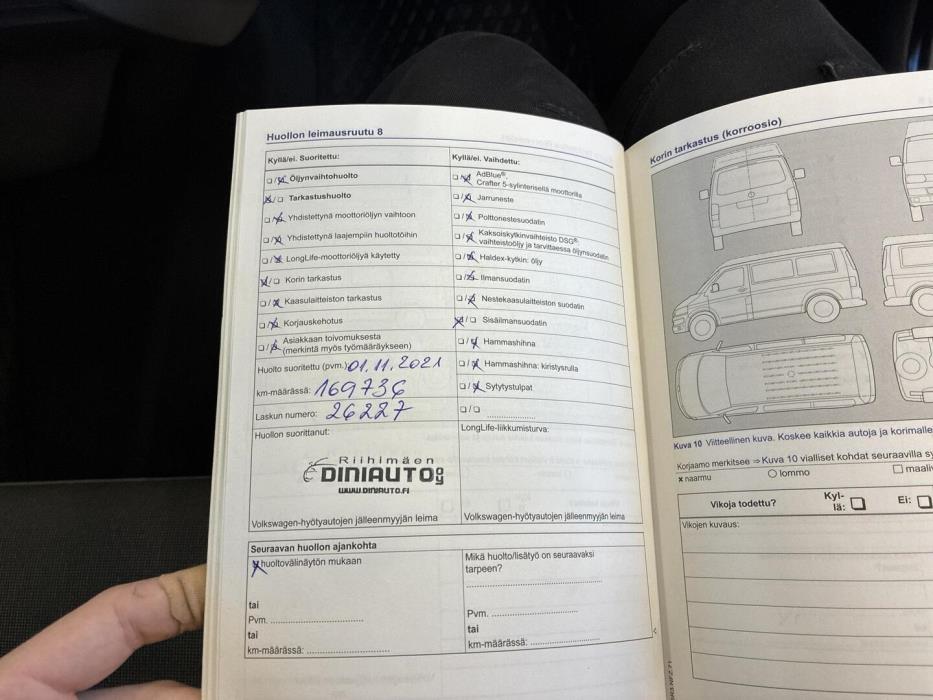 Huollon leimausruutu 8
Kyllä/ei. Suoritettu:
Öljynvaihtohuolto
Tarkastushuolto
Yhdistettynä moottoriöljyn vaihtoon
Yhdistettynä laajempiin huoltotöihin
LongLife-moottoriöljyä käytetty
Korin tarkastus
Kaasulaitteiston tarkastus
Korjauskehotus
Asiakkaan toivomuksesta
(merkintä myös työmääräykseen)
Huolto suoritettu (pvm.) 01.11.2021
km-määrässä: 169736
Laskun numero: 26227
Huollon suorittanut:
Riihimäen
DINIAUTO OY
WWW.DINIAUTO.FI
Volkswagen-hyötyautojen jälleenmyyjän leima
Kyllä/ei. Vaihdettu:
AdBlue®,
Crafter 5-sylinterisellä moottorilla
Jarruneste
Polttonestesuodatin
Kaksoiskytkinvaihteisto DSG®:
vaihteistoöljy ja tarvittaessa öljynsuodatin
Haldex-kytkin: öljy
Ilmansuodatin
Nestekaasulaitteiston suodatin
Sisäilmansuodatin
Hammashihna
Hammashihna: kiristysrulla
Sytytystulpat
LongLife-liikkumisturva:
Volkswagen-hyötyautojen jälleenmyyjän leima
Seuraavan huollon ajankohta
huoltovälinäytön mukaan
tai
Pvm.
tai
km-määrässä:
Mikä huolto/lisätyö on seuraavaksi
tarpeen?
Pvm.
tai
km-määrässä:
Korin tarkastus (korroosio)
Kuva 10 Viitteellinen kuva. Koskee kaikkia autoja ja korimalle
Korjaamo merkitsee ⇒ Kuva 10 vialliset kohdat seuraavilla sy
x naarmu
lommo
Vikoja todettu?
Kyl-
lä:
Ei:
Vikojen kuvaus: